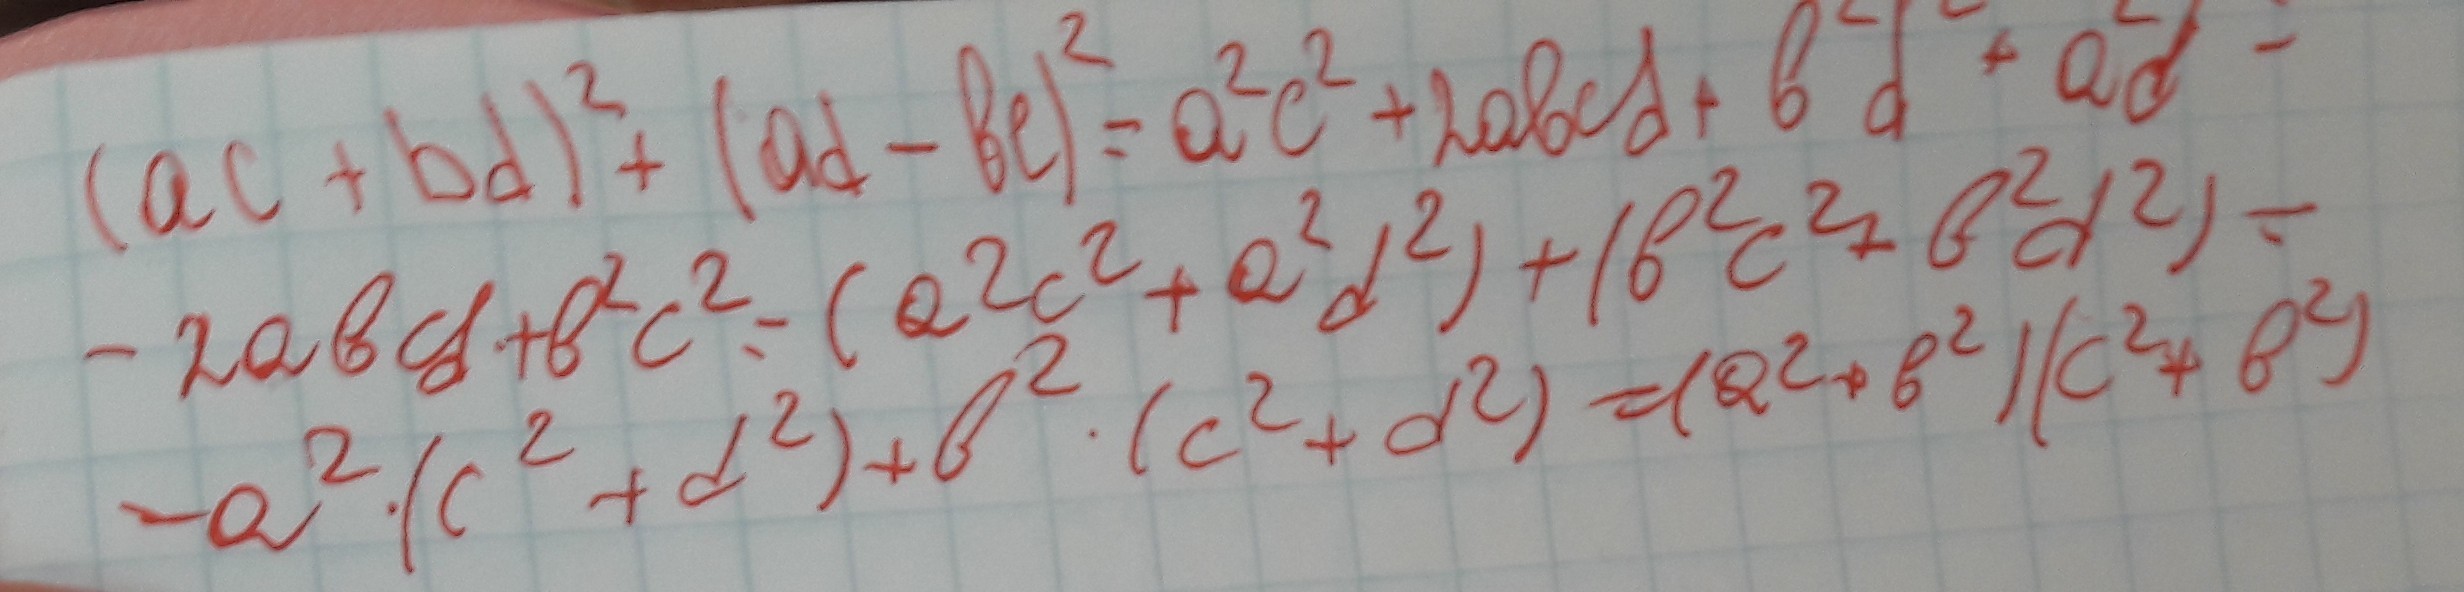 (ac + bd)² + (ad - bc)² = a²c² + 2abcd + b²d² + a²d² -
- 2abcd + b²c² = (a²c² + a²d²) + (b²c² + b²d²) =
- a² · (c² + d²) + b² · (c² + d²) = (a² + b²)(c² + b²)